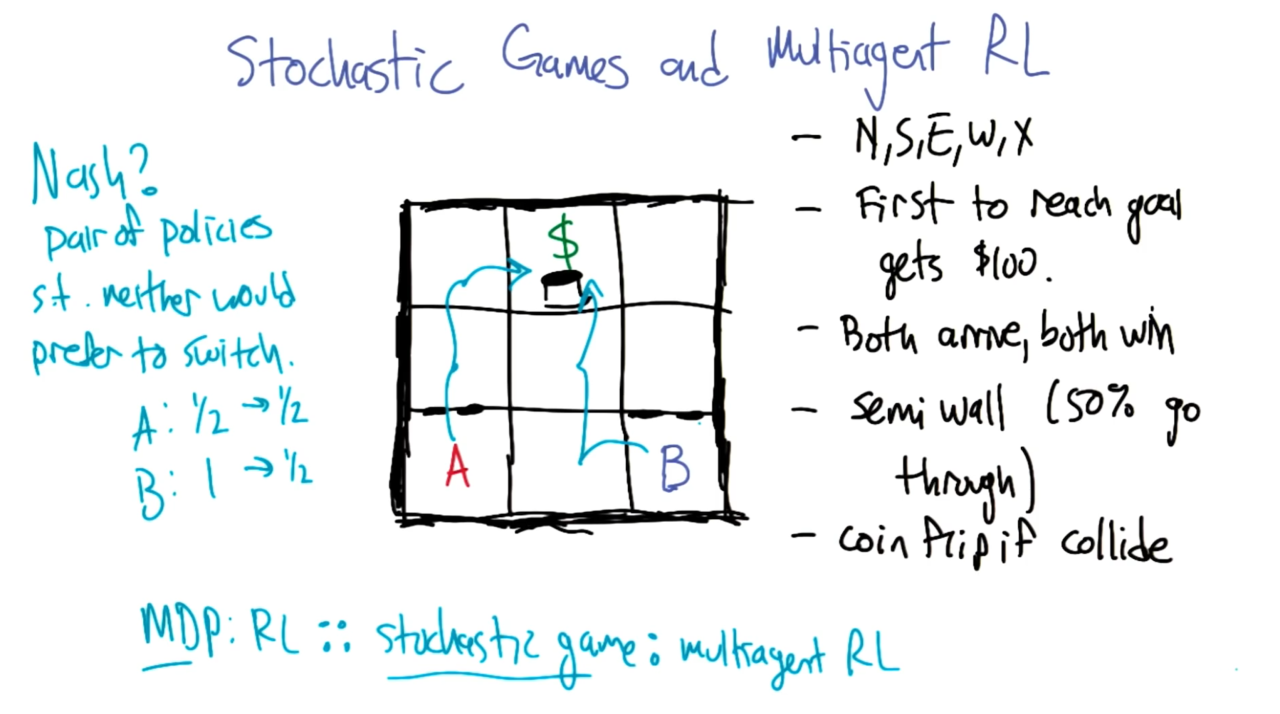 Stochastic Games and Multiagent RL
Nash?
pair of policies
s.t. neither would
prefer to switch.
A: 1/2 → 1/2
B: 1 → 1/2
$
A
B
- N,S,E,W,X
- First to reach goal
gets $100.
- Both arrive, both win
- semi wall (50% go
through)
- coin flip if collide
MDP: RL :: stochastic game: multiagent RL